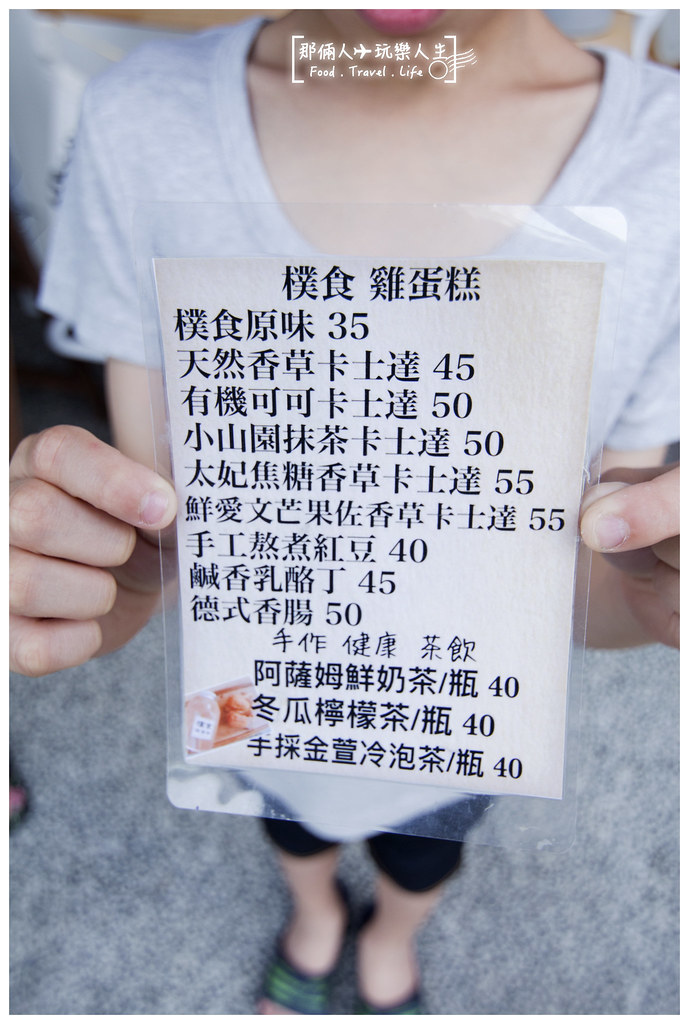 那倆人✈玩樂人生
Food . Travel . Life
樸食 雞蛋糕
樸食原味 35
天然香草卡士達 45
有機可可卡士達 50
小山園抹茶卡士達 50
太妃焦糖香草卡士達 55
鮮愛文芒果佐香草卡士達 55
手工熬煮紅豆 40
鹹香乳酪丁 45
德式香腸 50
手作 健康 茶飲
阿薩姆鮮奶茶/瓶 40
冬瓜檸檬茶/瓶 40
手採金萱冷泡茶/瓶 40